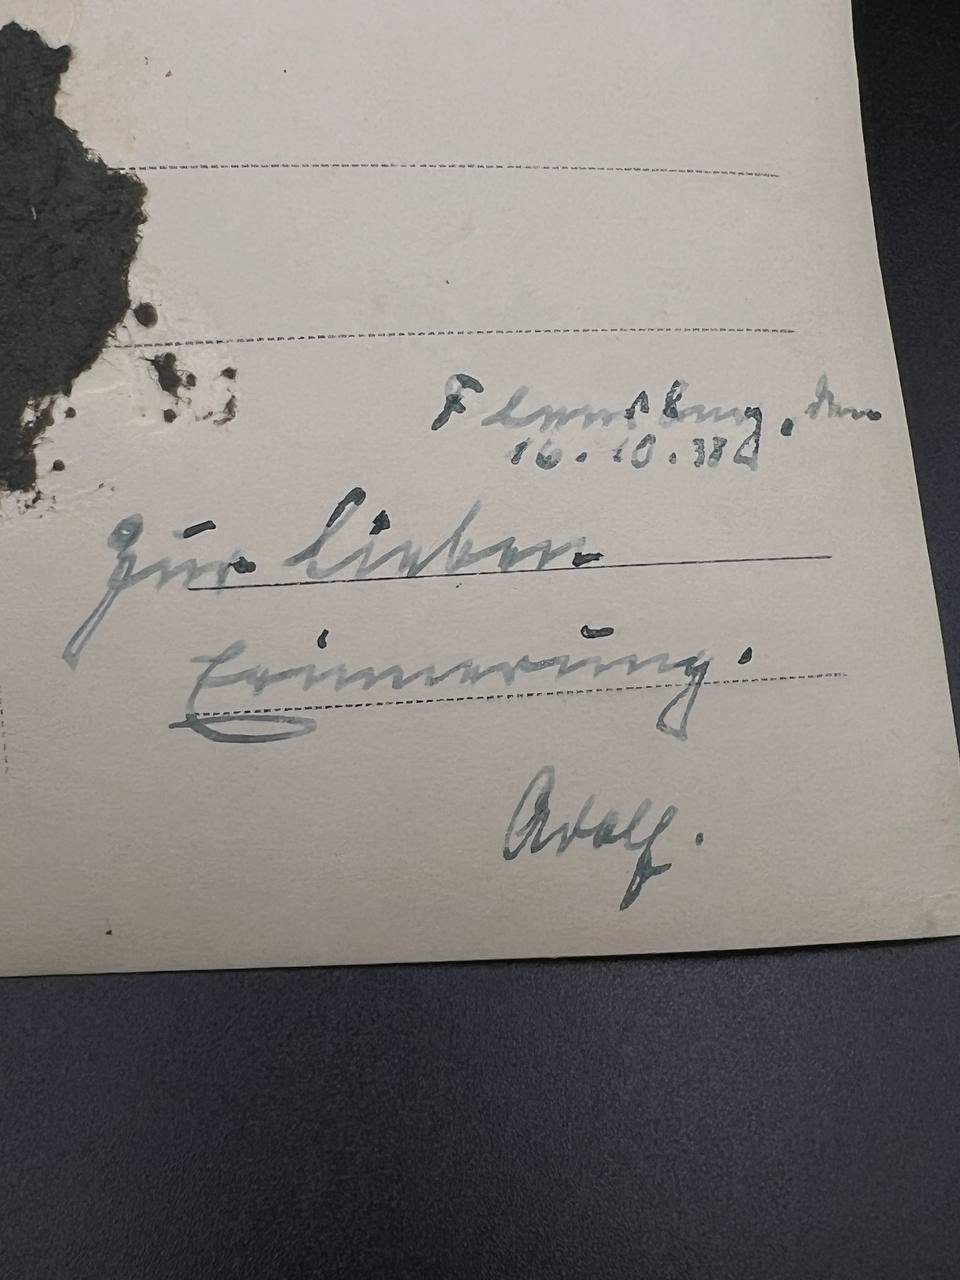 Flensburg, den
16.10.38
Zur lieben
Erinnerung.
Adolf.